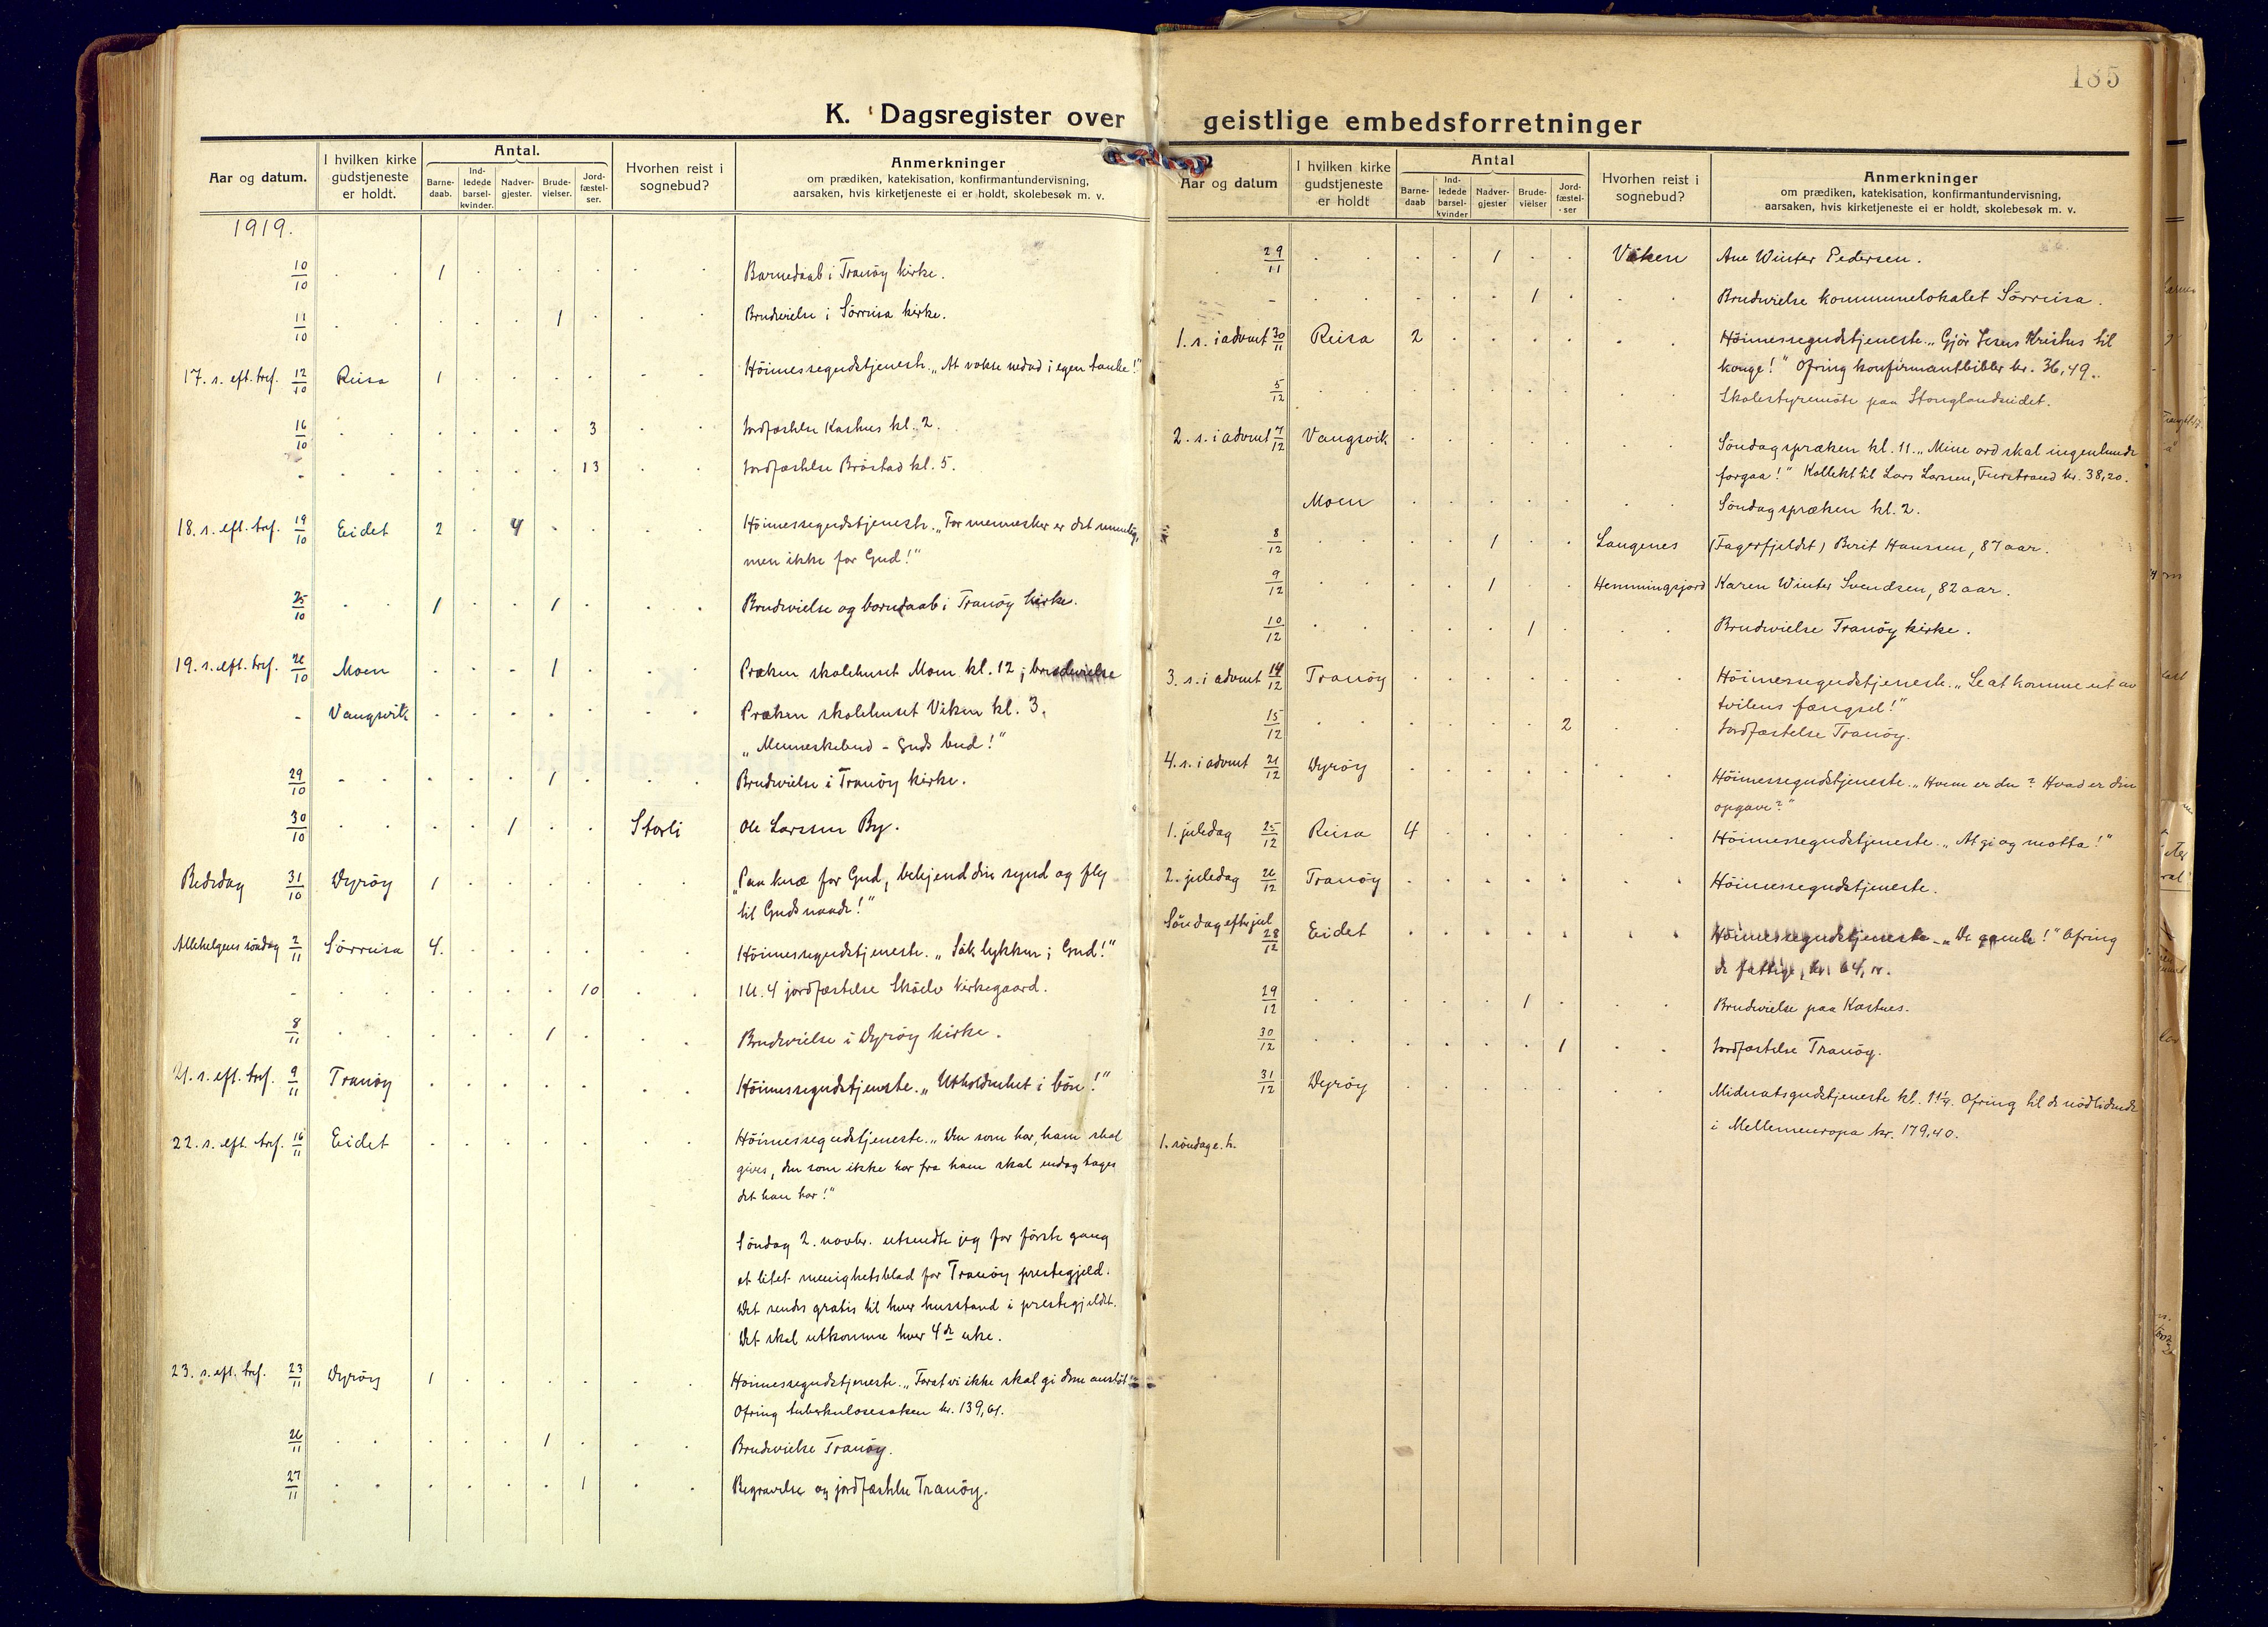 185
K. Dagsregister over geistlige embedsforretninger
Aar og datum. | I hvilken kirke gudstjeneste er holdt. | Antal. Barnedaab. | Indledede barselkvinder. | Nadvergjester. | Brudevielser. | Jordfæstelser. | Hvorhen reist i sognebud? | Anmerkninger om prædiken, katekisation, konfirmantundervisning, aarsaken, hvis kirketjeneste ei er holdt, skolebesøk m. v.
1919.
10/10 . . 1 . . . . . . Barnedaab i Tranöy kirke.
11/10 . . . . . 1 . . . Brudevielse i Sörreisa kirke.
17. s. eft. tref. 12/10 Reisa 1 . . . . . . Höimessegudstjeneste. „At vokse nedad i egen tanke!"
16/10 . . . . . . 3 . . Jordfæstelse Kastnes kl. 2.
- . . . . . . 13 . . Jordfæstelse Bröstad kl. 5.
18. s. eft. tref. 19/10 Eidet 2 . 4 . . . . Höimessegudstjeneste. „For mennesker er det umulig,
men ikke for Gud!"
25/10 . . 1 . . 1 . . . Brudevielse og barnedaab i Tranöy kirke.
19. s. eft. tref. 26/10 Moen . . . 1 . . . Præken skolehuset Moen kl. 12; brudevielse
- Vangsvik . . . . . . . Præken skolehuset Viken kl. 3.
„Menneskebud – Guds bud!"
29/10 . . . . . 1 . . . Brudevielse i Tranöy kirke.
30/10 . . . . 1 . . Storli Ole Larssen By.
Bedsdag 31/10 Dyröy 1 . . . . . . „Paa knæ for Gud, bekjend din synd og fly
til Guds naade!"
Allehelgens söndag 2/11 Sörreisa 4. . . . . . . Höimessegudstjeneste. „Sök lykken i Gud!"
- . . . . . . 10 . . Kl. 4 jordfæstelse Sköelv kirkegaard.
8/11 . . . . . 1 . . . Brudevielse i Dyröy kirke.
21. s. eft. tref. 9/11 Tranöy . . . . . . . Höimessegudstjeneste. „Utholdenhet i bön!"
22. s. eft. tref. 16/11 Eidet . . . . . . . Höimessegudstjeneste. „Den som har, ham skal
gives, den som ikke har fra ham skal endog tages
det han har!"
Söndag 2. novbr. utsendte jeg for förste gang
et litet menighetsblad for Tranöy prestegjeld.
Det sendes gratis til hver husstand i prestegjeldet.
Det skal utkomme hver 4de uke.
23. s. eft. tref. 23/11 Dyröy 1 . . . . . . Höimessegudstjeneste. „Forat vi ikke skal gi dem anstöt"
Ofring tuberkulosesaken kr. 139,61.
26/11 . . . . . 1 . . . Brudevielse Tranöy.
27/11 . . . . . . 1 . . Begravelse og jordfæstelse Tranöy.
Aar og datum | I hvilken kirke gudstjeneste er holdt | Antal Barnedaab | Indledede barselkvinder | Nadvergjester | Brudevielser | Jordfæstelser | Hvorhen reist i sognebud? | Anmerkninger om prædiken, katekisation, konfirmantundervisning, aarsaken, hvis kirketjeneste ei er holdt, skolebesøk m. v.
29/11 . . . . 1 . . Viken Ane Winter Pedersen.
- . . . . . 1 . . . Brudevielse kommunelokalet Sörreisa.
1. s. i advent 30/11 Reisa 2 . . . . . . Höimessegudstjeneste. „Gjör Jesus Kristus til
konge!" Ofring konfirmantbibler kr. 36,49.
5/12 . . . . . . . . . Skolestyremöte paa Stonglandseidet.
2. s. i advent 7/12 Vangsvik . . . . . . . Söndagspræken kl. 11. „Mine ord skal ingenlunde
forgaa!" Kollekt til Lars Larssen, Furstrand kr. 38,20.
Moen . . . . . . . Söndagspræken kl. 2.
8/12 . . . . 1 . . Langenes (Fagerfjeldet) Berit Hanssen, 87 aar.
9/12 . . . . 1 . . Hemmingsjord Karen Winter Svendsen, 82 aar.
10/12 . . . . . 1 . . . Brudevielse Tranöy kirke.
3. s. i advent 14/12 Tranöy . . . . . . . Höimessegudstjeneste. „Se at komme ut av
tvilens fængsel!"
15/12 . . . . . . 2 . . Jordfæstelse Tranöy.
4. s. i advent 21/12 Dyröy . . . . . . . Höimessegudstjeneste. „Hvem er du? Hvad er din
opgave?"
1. juledag 25/12 Reisa 4 . . . . . . Höimessegudstjeneste. „At gi og motta!"
2. juledag 26/12 Tranöy . . . . . . . Höimessegudstjeneste.
Söndag efter jul 28/12 Eidet . . . . . . . Höimessegudstjeneste – „De gamle!" Ofring
de fattige, kr. 64,
29/12 . . . . . 1 . . . Brudevielse paa Kastnes.
30/12 . . . . . . 1 . . Jordfæstelse Tranöy.
31/12 Dyröy . . . . . . . Midnatsgudstjeneste kl. 11¼. Ofring til de nödlidende
i Mellemeuropa kr. 179,40.
1. söndag e. h.